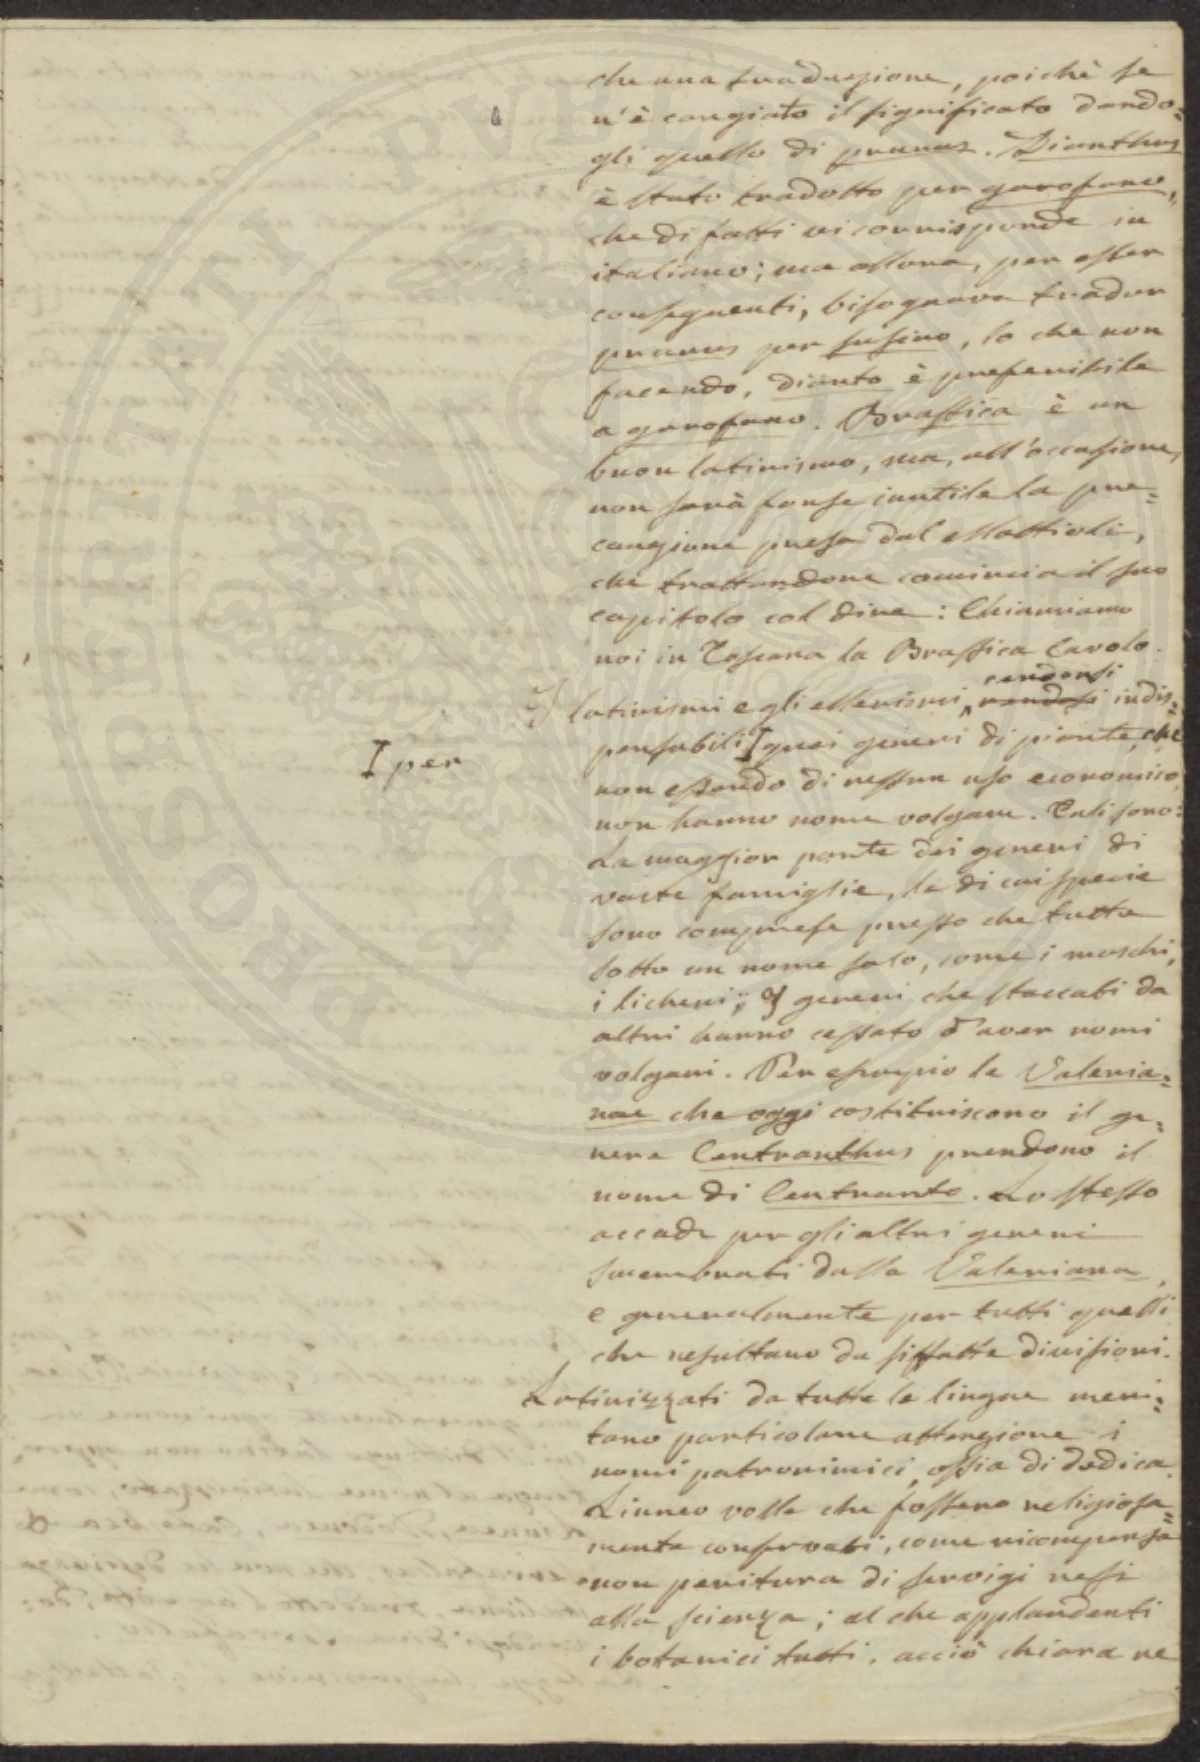 che una traduzione, poichè se
n'è cangiato il significato dando=
gli quello di prunus. Dianthus
è stato tradotto per garofano,
che di fatti vi corrisponde in
italiano; ma allora, per esser
conseguenti, bisognava tradur
prunus per susino, lo che non
facendo, dianto è preferibile
a garofano. Brassica è un
buon latinismo, ma, all'occasione,
non sarà forse inutile la pre=
cauzione presa dal Mattioli,
che trattandone comincia il suo
capitolo col dire: Chiamiamo
noi in Toscana la Brassica Cavolo.
rendonsi
I latinismi e gli ellenismi rendosi indis=
pensabili I quei generi di piante, che
I per
non essendo di nessun uso economico,
non hanno nome volgare. Tali sono:
La maggior parte dei generi di
vaste famiglie, le di cui specie
sono comprese presso che tutte
sotto un nome solo, come i muschi,
i licheni; I generi che staccati da
altri hanno cessato d'aver nomi
volgari. Per esempio le Valeria=
nae che oggi costituiscono il ge=
nere Centranthus prendono il
nome di Centranto. Lo stesso
accade per gli altri generi
smembrati dalla Valeriana,
e generalmente per tutti quelli
che resultano da siffatte divisioni.
Latinizzati da tutte le lingue meri=
tano particolare attenzione i
nomi patronimici, ossia di dedica.
Linneo volle che fossero religiosa=
mente conservati, come ricompensa
non peritura di servigi resi
alla scienza; al che applaudenti
i botanici tutti, acciò chiara ne
PROSPERITATI PVBLICAE